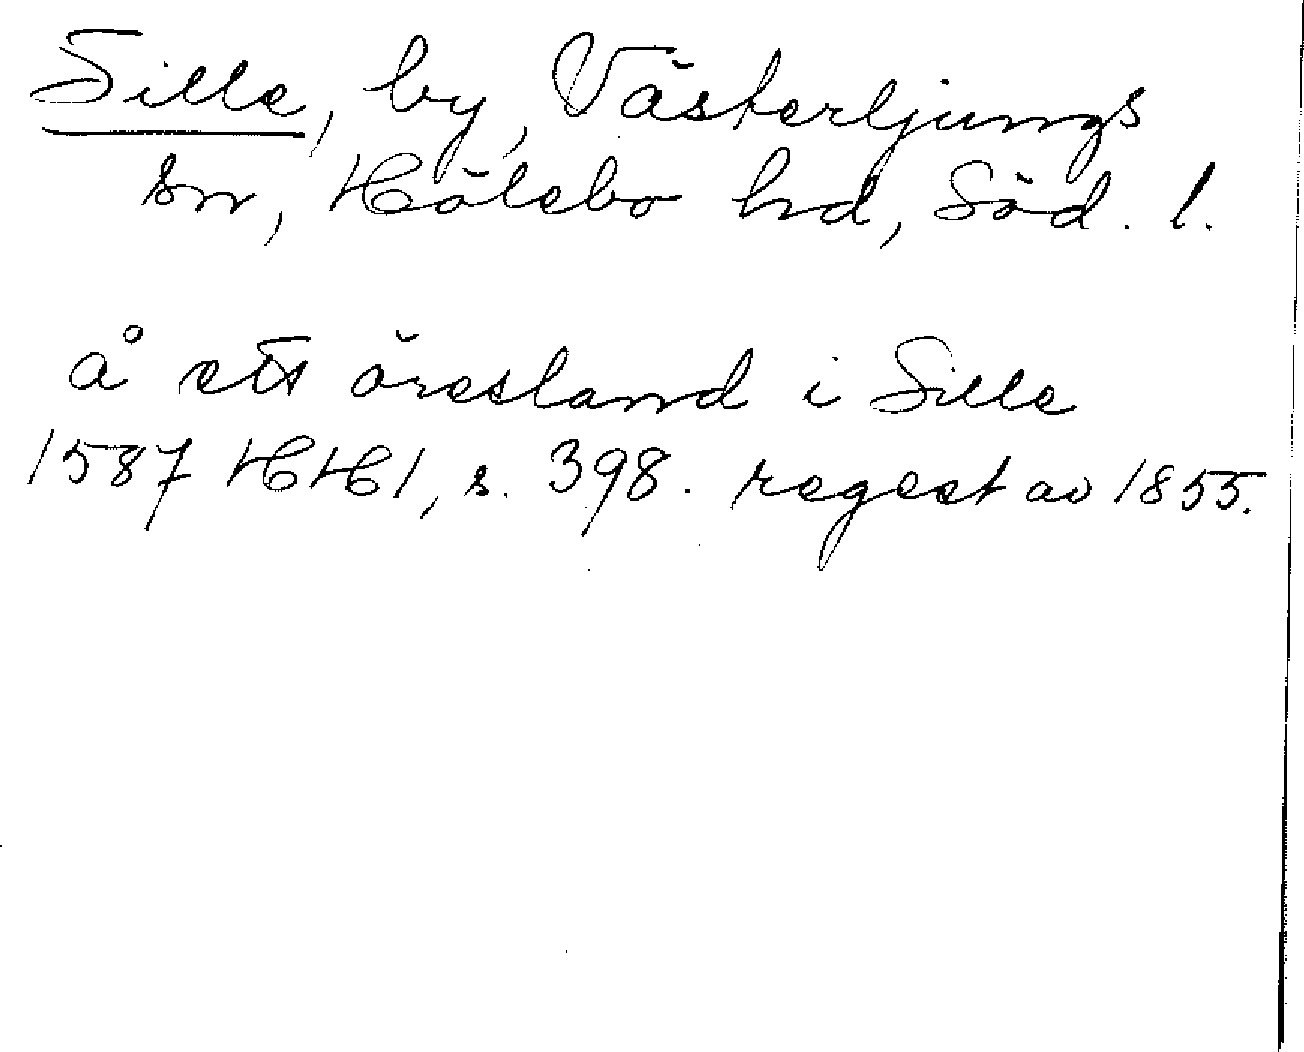 Sille, by, Västerljungs
sn, Hölebo hd, Söd. l.
å ett öresland i Sille
1587 HH1, s. 398. regest av 1855.